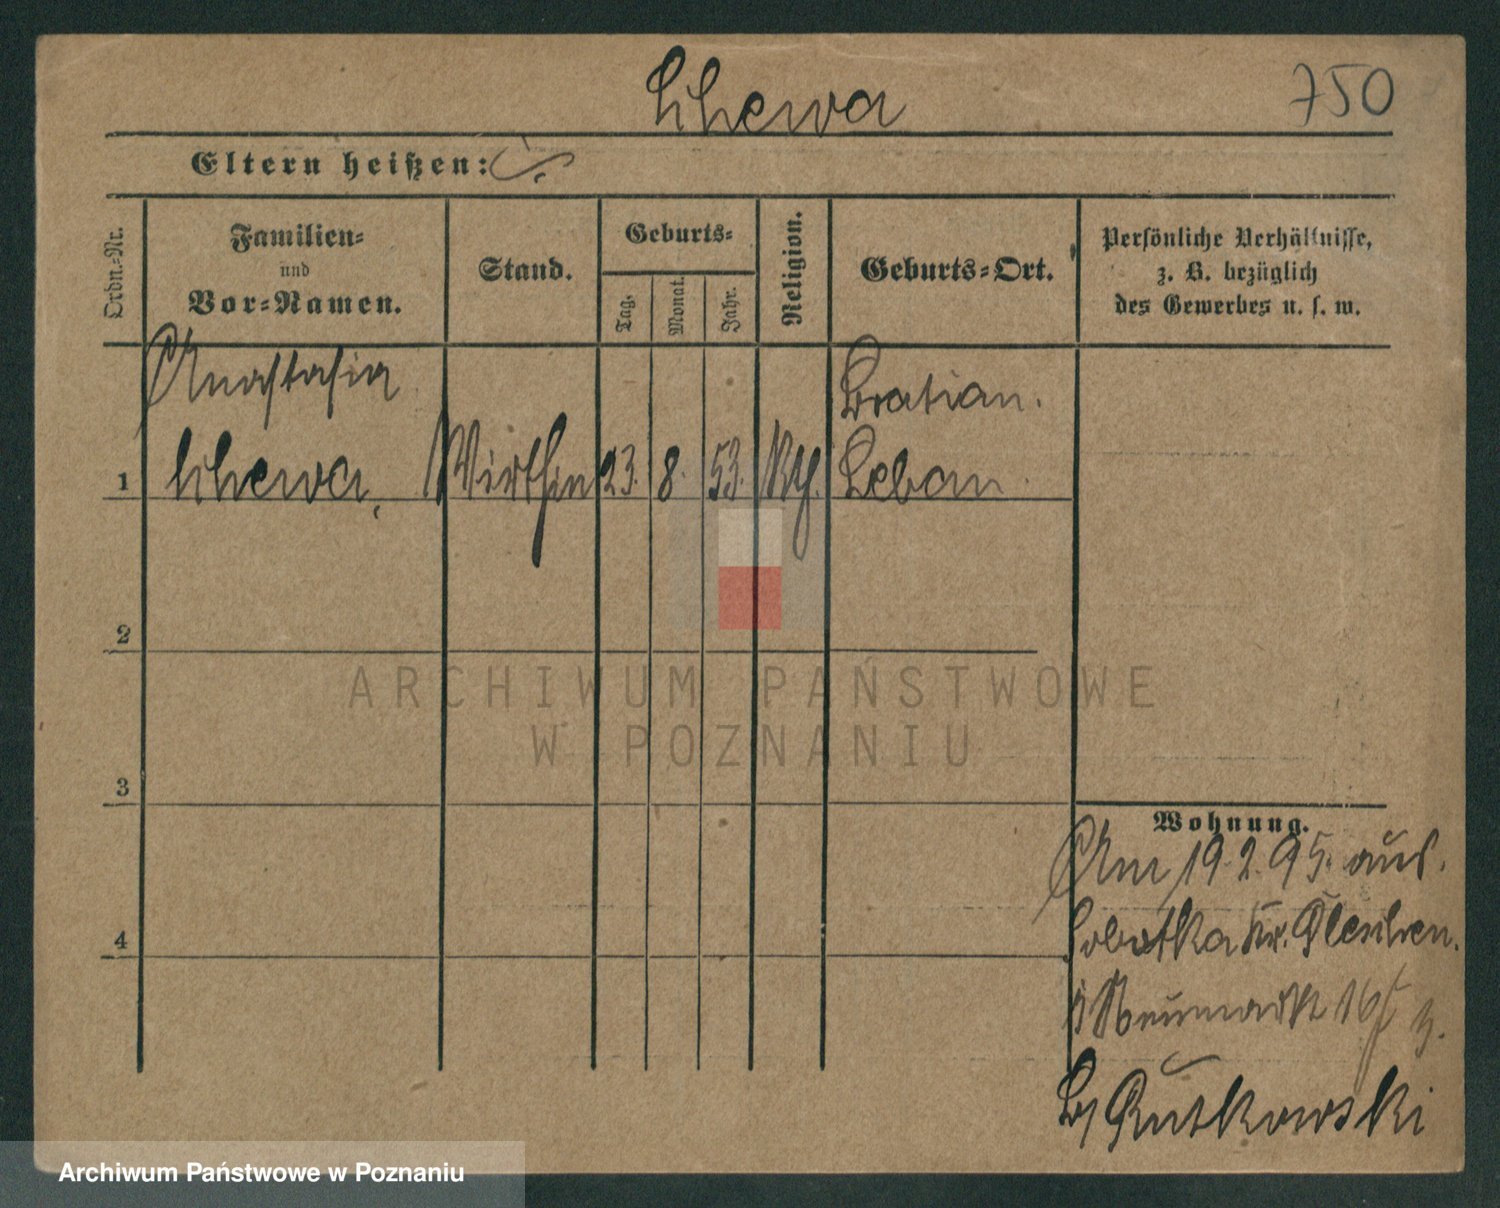 750
Eltern heißen:
Ordn.-Nr.
Familien-
und
Vor-Namen.
Stand.
Geburts-
Tag.
Monat.
Jahr.
Religion.
Geburts-Ort.
Persönliche Verhältnisse,
z. B. bezüglich
des Gewerbes u. s. w.
Anastasia
Bratian.
1 Wirthin 23. 8. 53. Kth.
2
ARCHIWUM PAŃSTWOWE
W POZNANIU
3
Wohnung.
Am 19.2.95. aus
4
Sobotka Kr. Pleschen.
Neumarkt
b/ Rutkowski
Archiwum Państwowe w Poznaniu